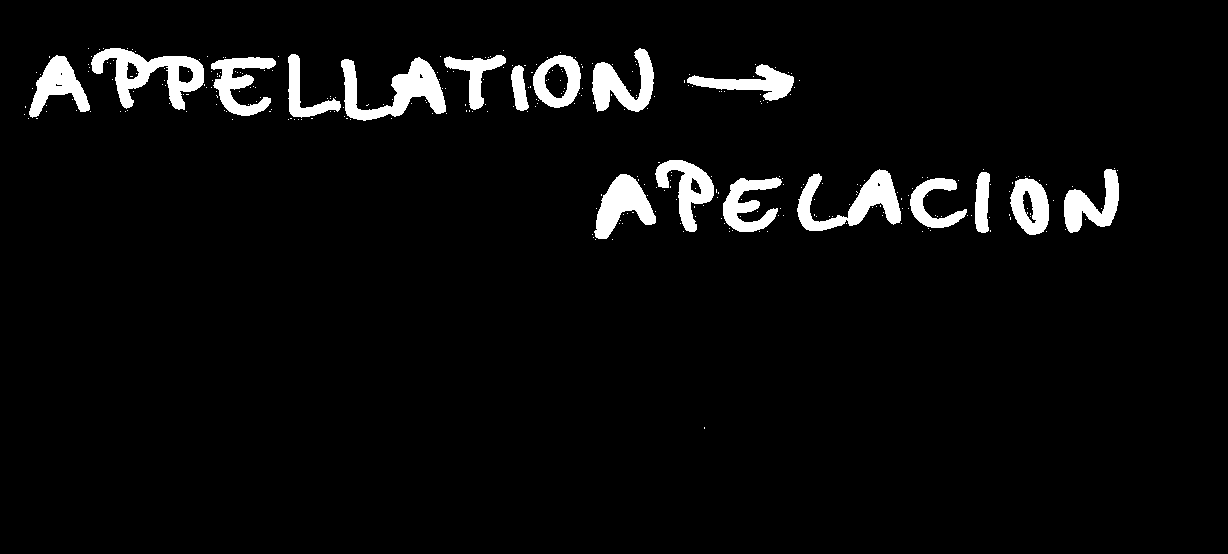 APPELLATION →
APELACION